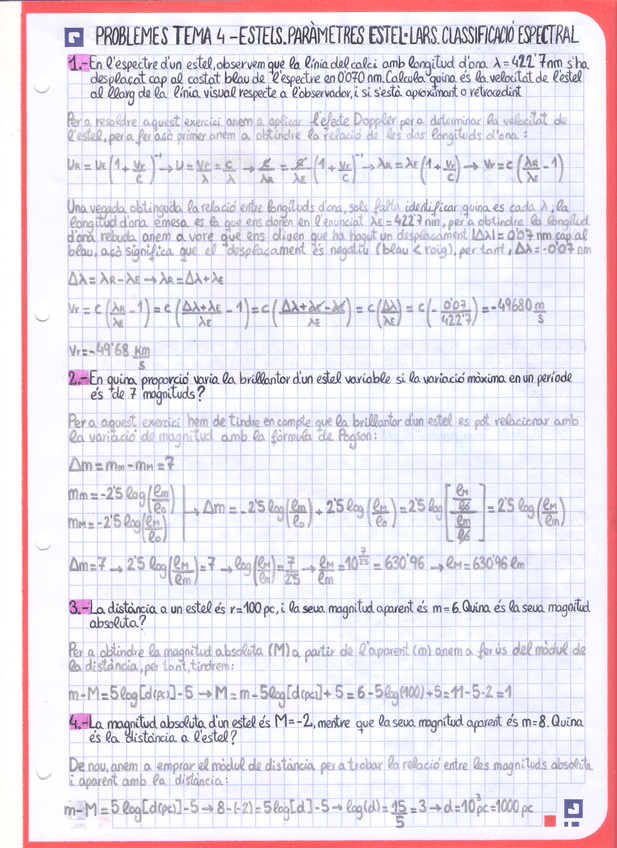 PROBLEMES TEMA 4 – ESTELS. PARÀMETRES ESTEL·LARS. CLASSIFICACIÓ ESPECTRAL
1.- En l'espectre d'un estel, observem que la línia del calci amb longitud d'ona λ = 422'7nm s'ha
desplaçat cap al costat blau de l'espectre en 0'070 nm. Calcula quina és la velocitat de l'estel
al llarg de la línia visual respecte a l'observador, i si s'està aproximant o retrocedint
Per a resoldre aquest exercici anem a aplicar l'efecte Doppler per a determinar la velocitat de
l'estel, per a fer açò primer anem a obtindre la relació de les dos longituds d'ona:
υR = υE(1 + Vr/c)⁻¹ → υ = VP/λ = c/λ → c/λR = c/λE (1 + Vr/c)⁻¹ → λR = λE(1 + Vr/c) → Vr = c(λR/λE - 1)
Una vegada obtinguda la relació entre longituds d'ona, sols falta identificar quina es cada λ, la
longitud d'ona emesa es la que ens donen en l'enunciat λE = 422'7 nm, per a obtindre la longitud
d'ona rebuda anem a vore que ens diuen que ha hagut un desplaçament |Δλ| = 0'07 nm cap al
blau, açò significa que el desplaçament és negatiu (blau < roig), per tant, Δλ = -0'07 nm
Δλ = λR - λE → λR = Δλ + λE
Vr = c(λR/λE - 1) = c(Δλ + λE/λE - 1) = c(Δλ + λE - λE/λE) = c(Δλ/λE) = c(- 0'07/422'7) = -49680 m/s
Vr = -49'68 km/s
2.- En quina proporció varia la brillantor d'un estel variable si la variació màxima en un període
és de 7 magnituds?
Per a aquest exercici hem de tindre en compte que la brillantor d'un estel es pot relacionar amb
la variació de magnitud amb la fòrmula de Pogson:
Δm = mm - mM = 7
mm = -2'5 log(lm/l0)
mM = -2'5 log(lM/l0)
→ Δm = -2'5 log(lm/l0) + 2'5 log(lM/l0) = 2'5 log[(lM/l0)/(lm/l0)] = 2'5 log(lM/lm)
Δm = 7 → 2'5 log(lM/lm) = 7 → log(lM/lm) = 7/2'5 → lM/lm = 10^(7/2'5) = 630'96 → lM = 630'96 lm
3.- La distància a un estel és r = 100 pc, i la seua magnitud aparent és m = 6. Quina és la seua magnitud
absoluta?
Per a obtindre la magnitud absoluta (M) a partir de l'aparent (m) anem a fer ús del mòdul de
la distància, per tant, tindrem:
m - M = 5 log[d(pc)] - 5 → M = m - 5 log[d(pc)] + 5 = 6 - 5 log(100) + 5 = 11 - 5·2 = 1
4.- La magnitud absoluta d'un estel és M = -2, mentre que la seua magnitud aparent és m = 8. Quina
és la distància a l'estel?
De nou, anem a emprar el mòdul de distància per a trobar la relació entre les magnituds absoluta
i aparent amb la distància:
m - M = 5 log[d(pc)] - 5 → 8 - (-2) = 5 log[d] - 5 → log(d) = 15/5 = 3 → d = 10³ pc = 1000 pc